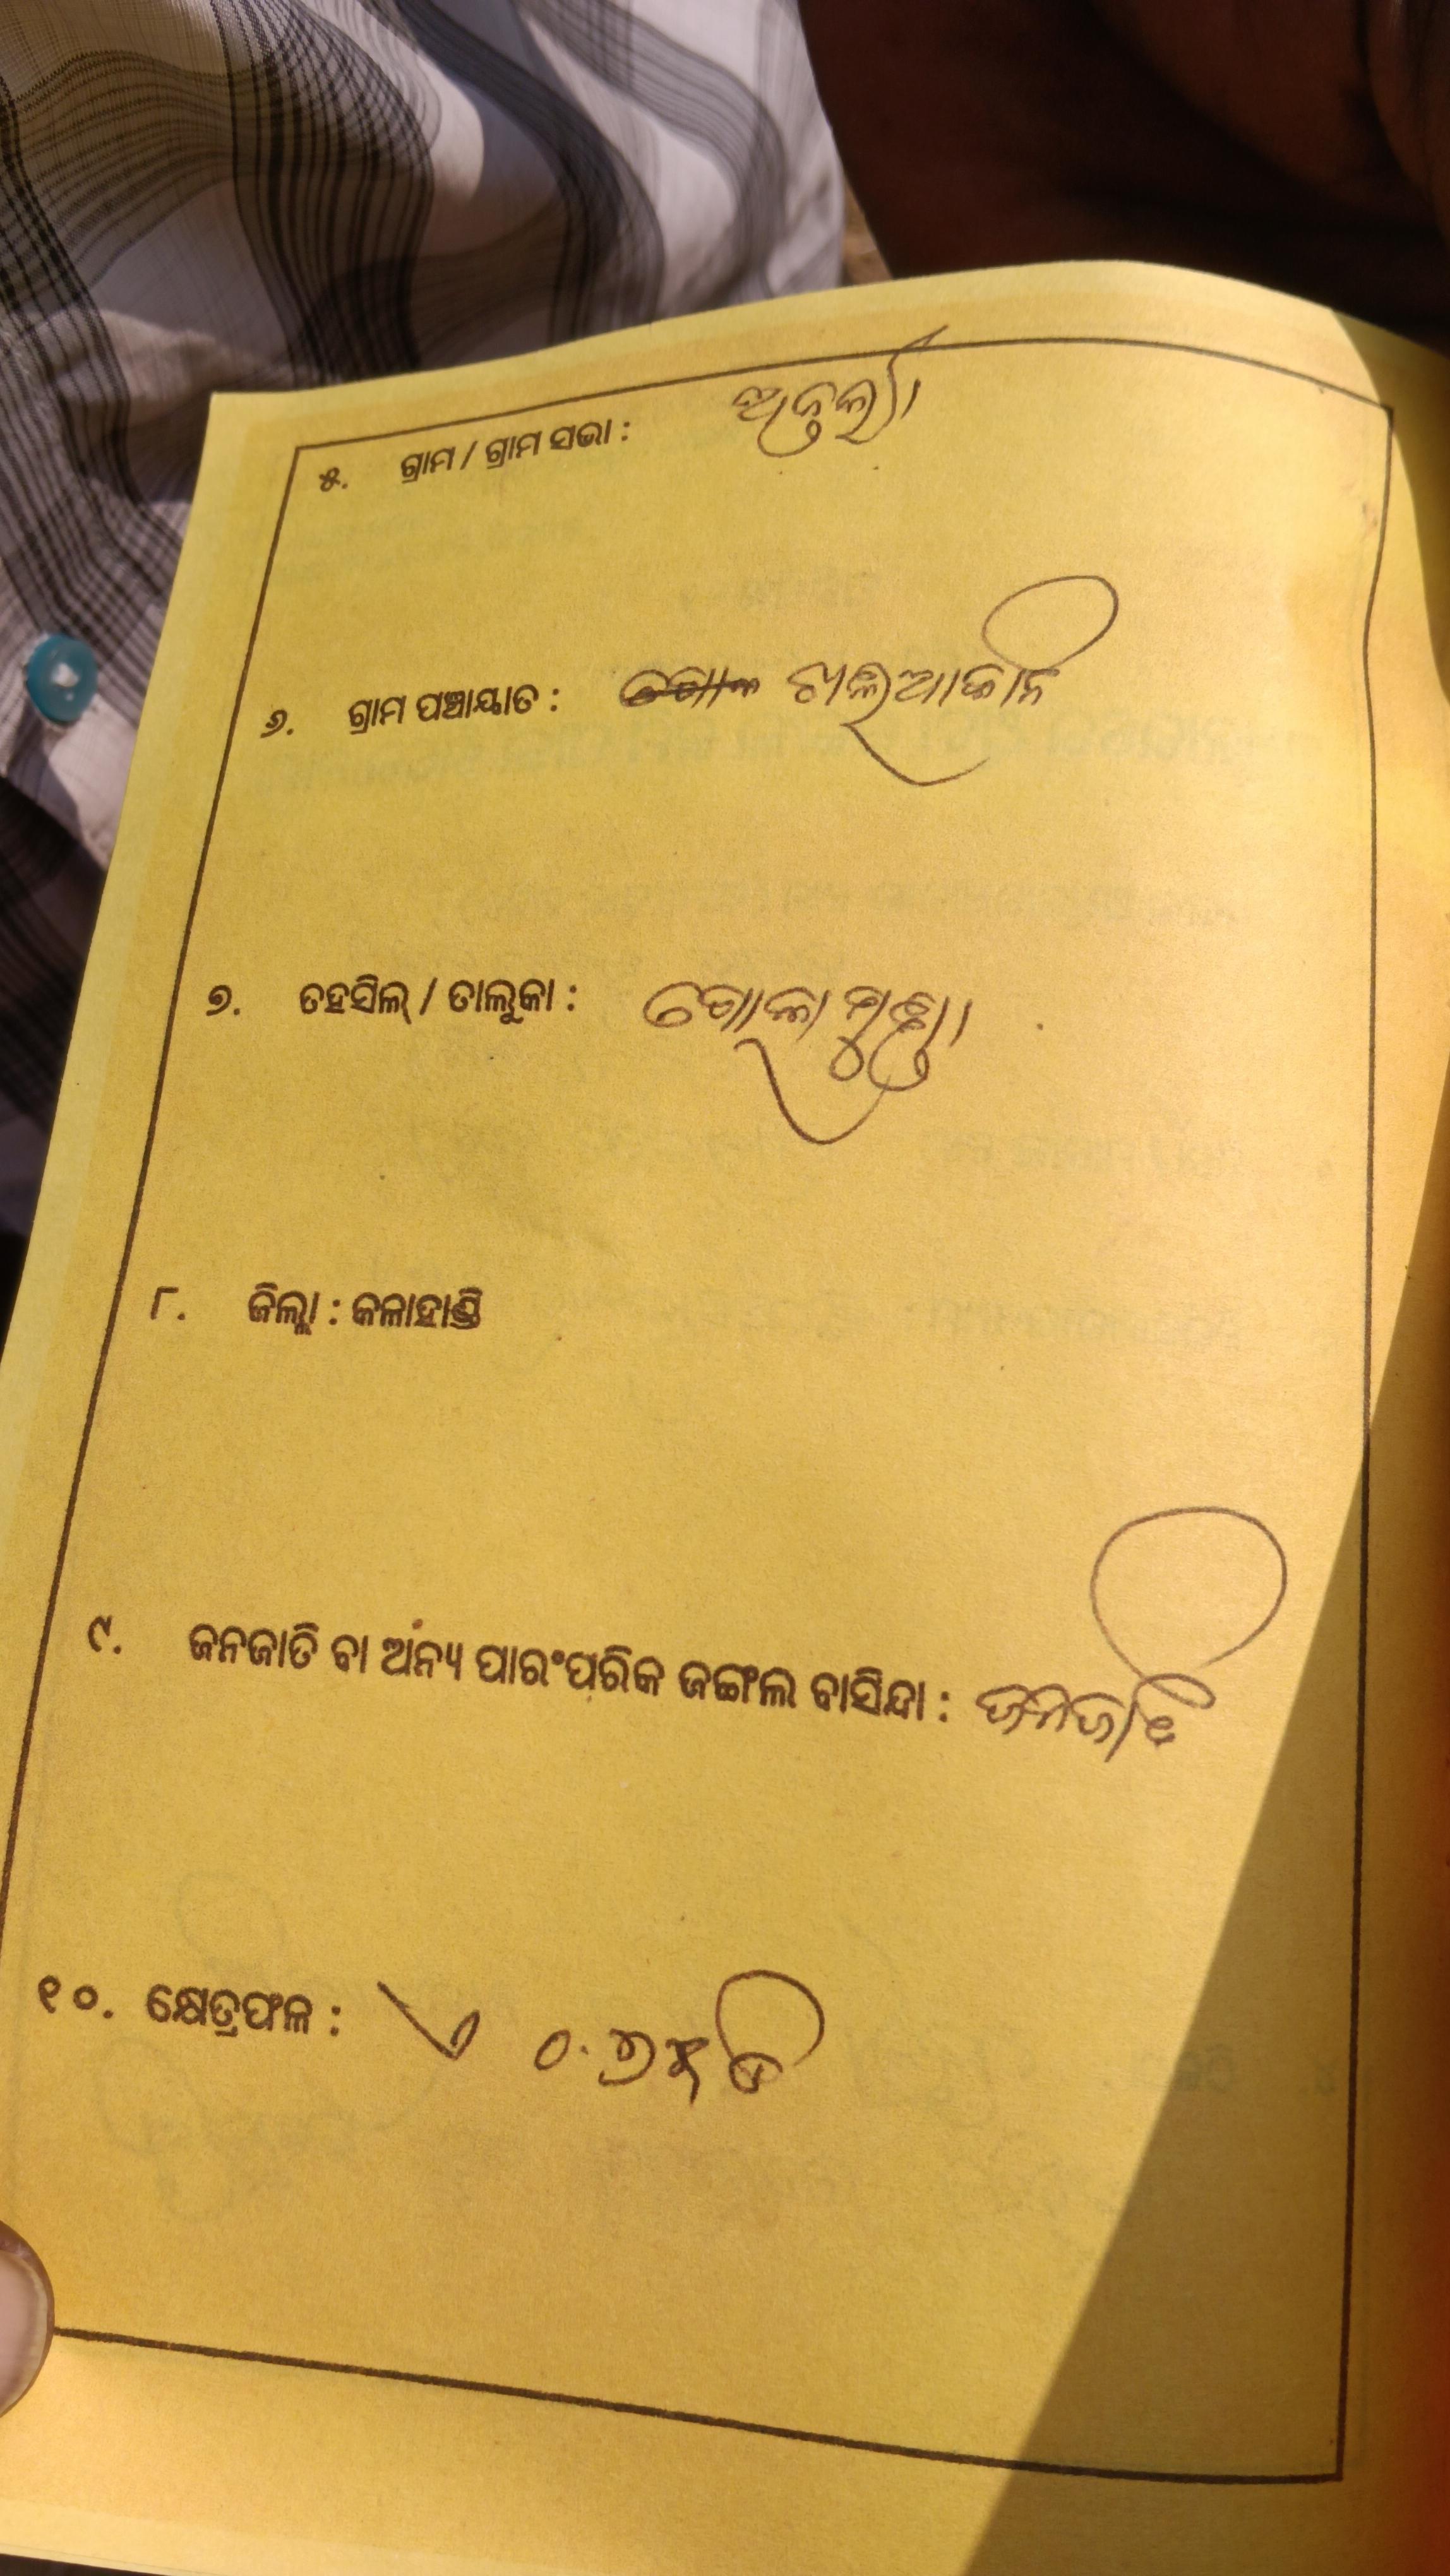 ୫. ଗ୍ରାମ / ଗ୍ରାମ ସଭା :
୬. ଗ୍ରାମ ପଞ୍ଚାୟାତ :
୭. ତହସିଲ୍ / ତାଲୁକା : ଗୋଲାମୁଣ୍ଡା
୮. ଜିଲ୍ଲା : କଳାହାଣ୍ଡି
୯. ଜନଜାତି ବା ଅନ୍ୟ ପାରଂପରିକ ଜଙ୍ଗଲ ବାସିନ୍ଦା : ଜନଜାତି
୧୦. କ୍ଷେତ୍ରଫଳ :